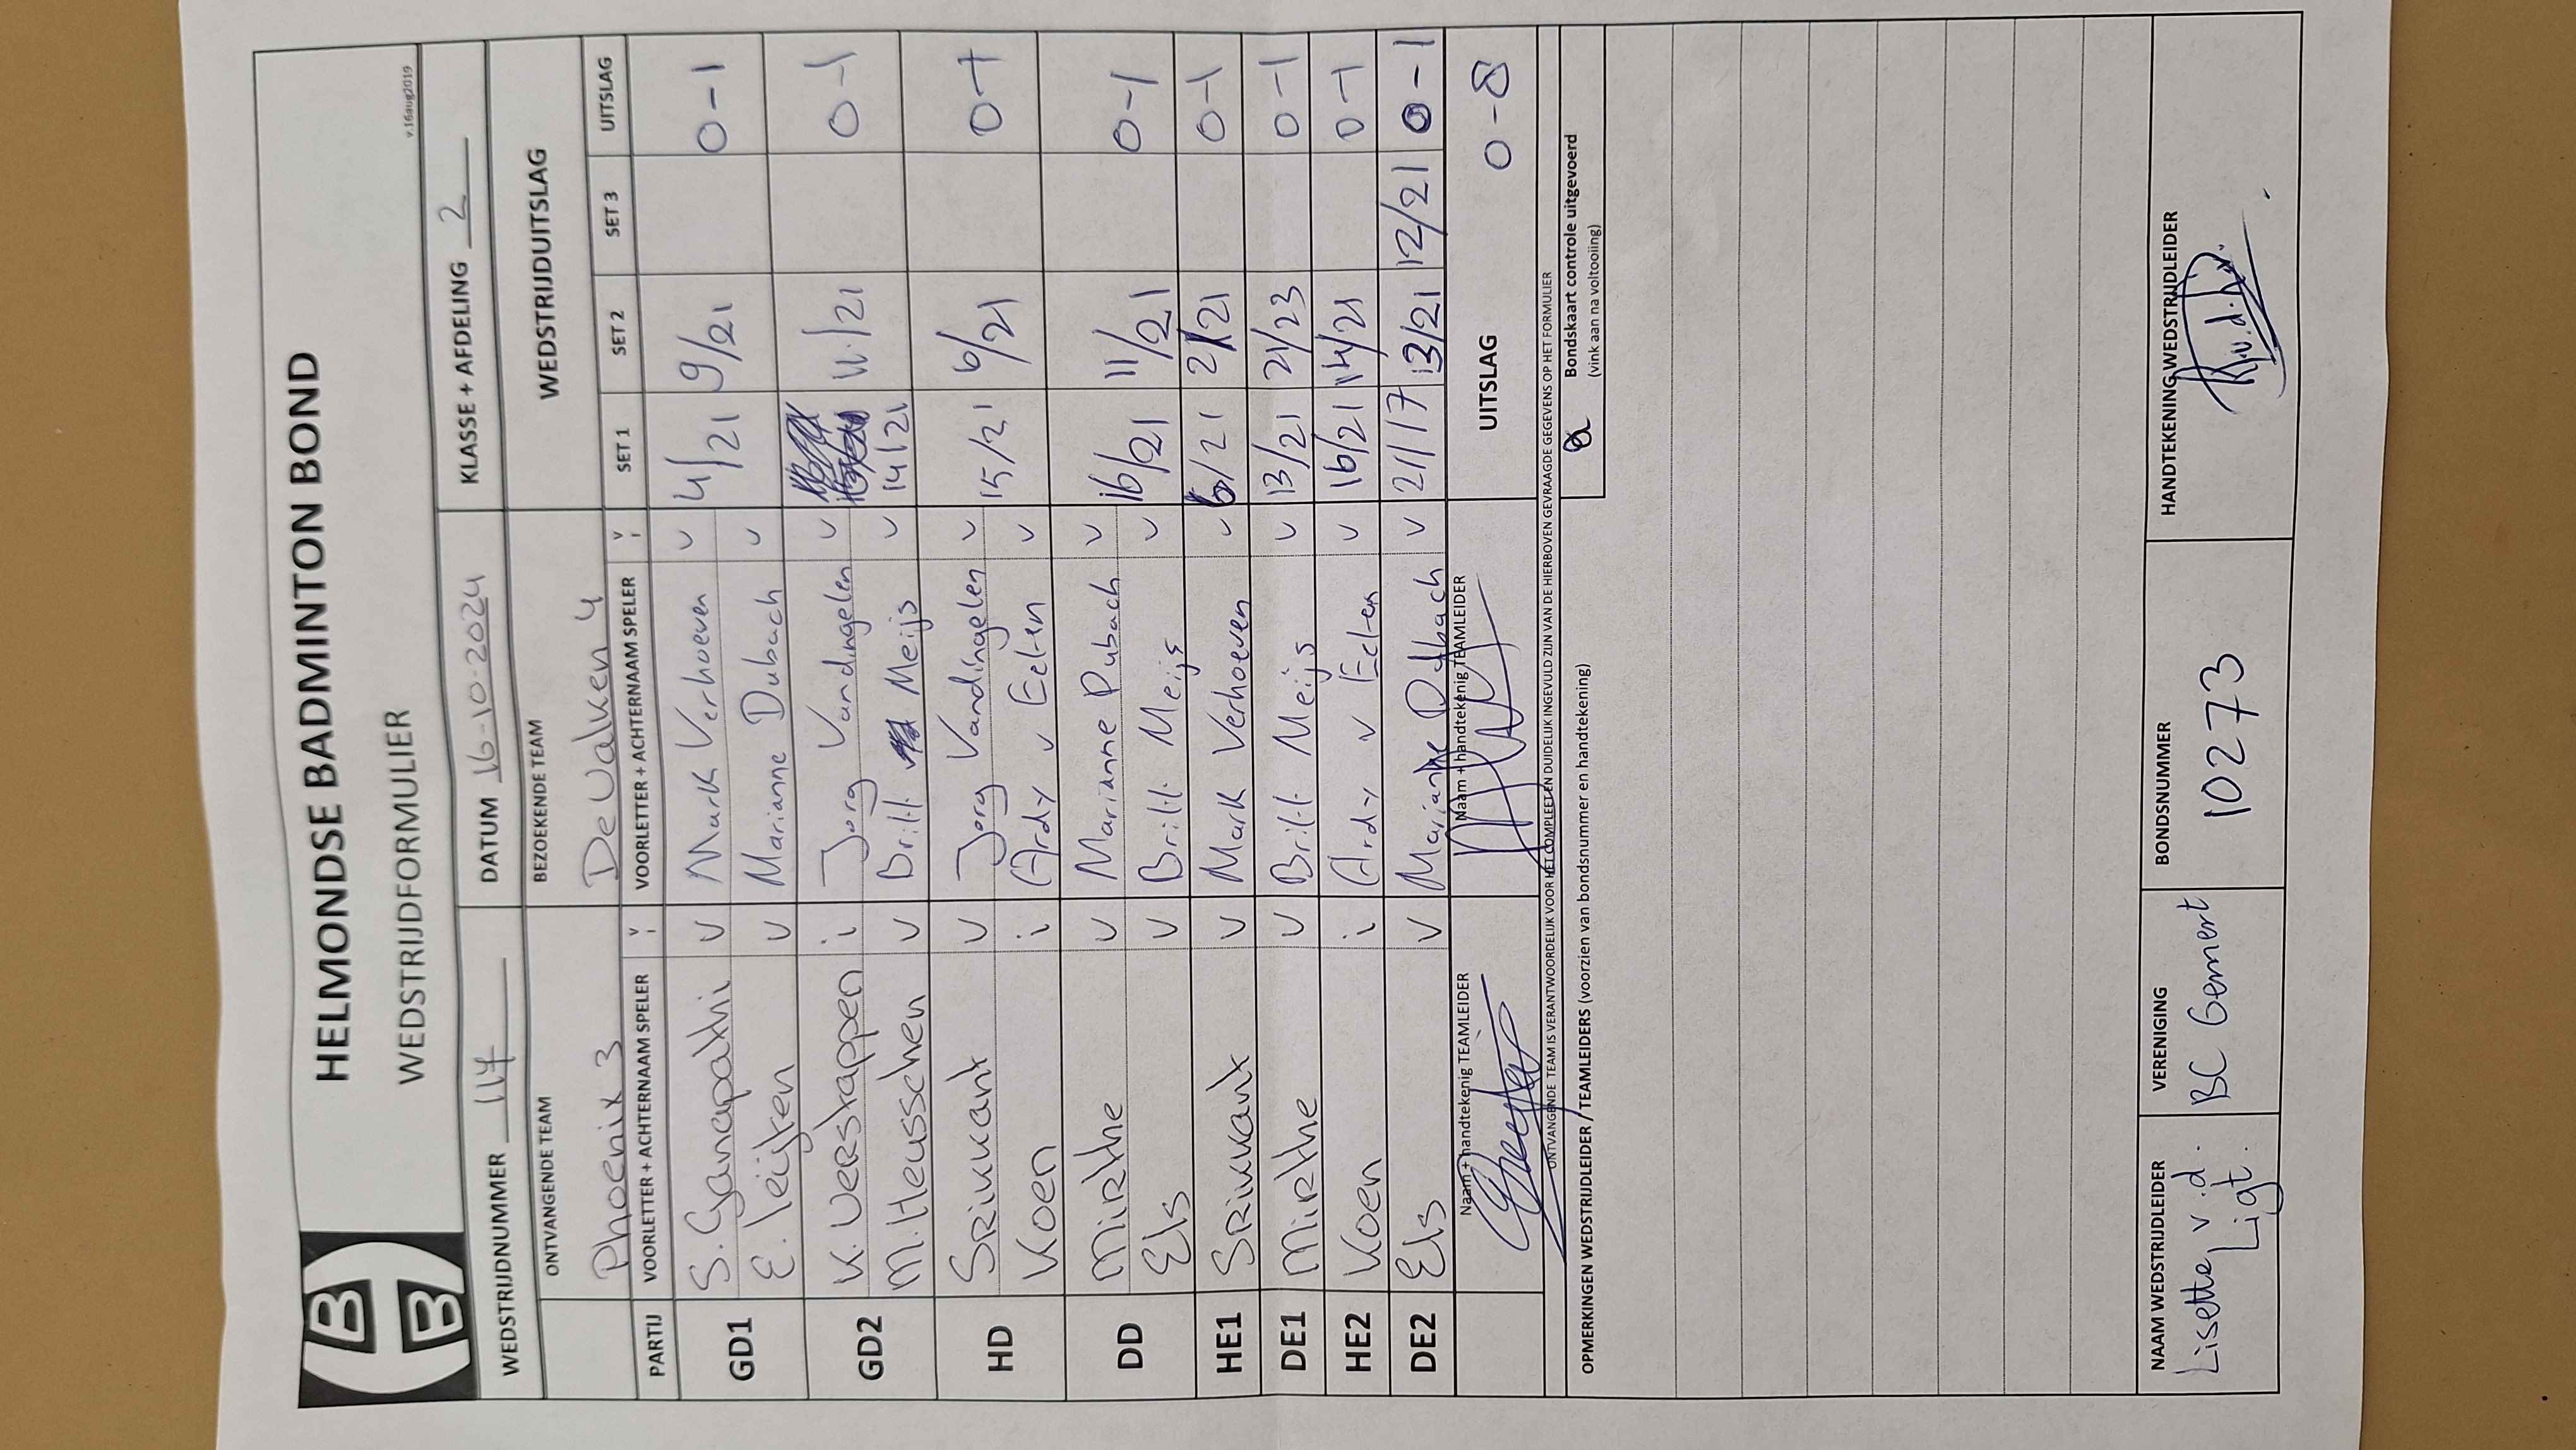 HELMONDSE BADMINTON BOND
WEDSTRIJDFORMULIER
v.16aug2019
WEDSTRIJDNUMMER 117 DATUM 16-10-2024 KLASSE + AFDELING 2
ONTVANGENDE TEAM BEZOEKENDE TEAM WEDSTRIJDUITSLAG
Phoenix 3 De Valken 4
PARTIJ VOORLETTER + ACHTERNAAM SPELER V i VOORLETTER + ACHTERNAAM SPELER V i SET 1 SET 2 SET 3 UITSLAG
GD1 S. Ganapathi v Mark Verhoeven v 4/21 9/21 0-1
E. Leijten v Marianne Dubach v
GD2 K. Verstappen i Jorg Vandingelen v 14/21 11/21 0-1
M. Heusschen v Britt Meijs v
HD Srikkant v Jorg Vandingelen v 15/21 6/21 0-1
Koen i Ardy v Eelen v
DD Mirthe v Marianne Dubach v 16/21 11/21 0-1
Els v Britt Meijs v
HE1 Srikkant v Mark Verhoeven v 6/21 21/21 0-1
DE1 Mirthe v Britt Meijs v 13/21 21/23 0-1
HE2 Koen i Ardy v Eelen v 16/21 14/21 0-1
DE2 Els v Marianne Dubach v 21/17 13/21 12/21 0-1
Naam + handtekenig TEAMLEIDER Naam + handtekenig TEAMLEIDER UITSLAG 0-8
ONTVANGENDE TEAM IS VERANTWOORDELIJK VOOR HET COMPLEET EN DUIDELIJK INGEVULD ZIJN VAN DE HIERBOVEN GEVRAAGDE GEGEVENS OP HET FORMULIER
OPMERKINGEN WEDSTRIJDLEIDER / TEAMLEIDERS (voorzien van bondsnummer en handtekening)
Bondskaart controle uitgevoerd
(vink aan na voltooiing)
NAAM WEDSTRIJDLEIDER VERENIGING BONDSNUMMER HANDTEKENING WEDSTRIJDLEIDER
Lisette v.d. Ligt. BC Gemert 10273